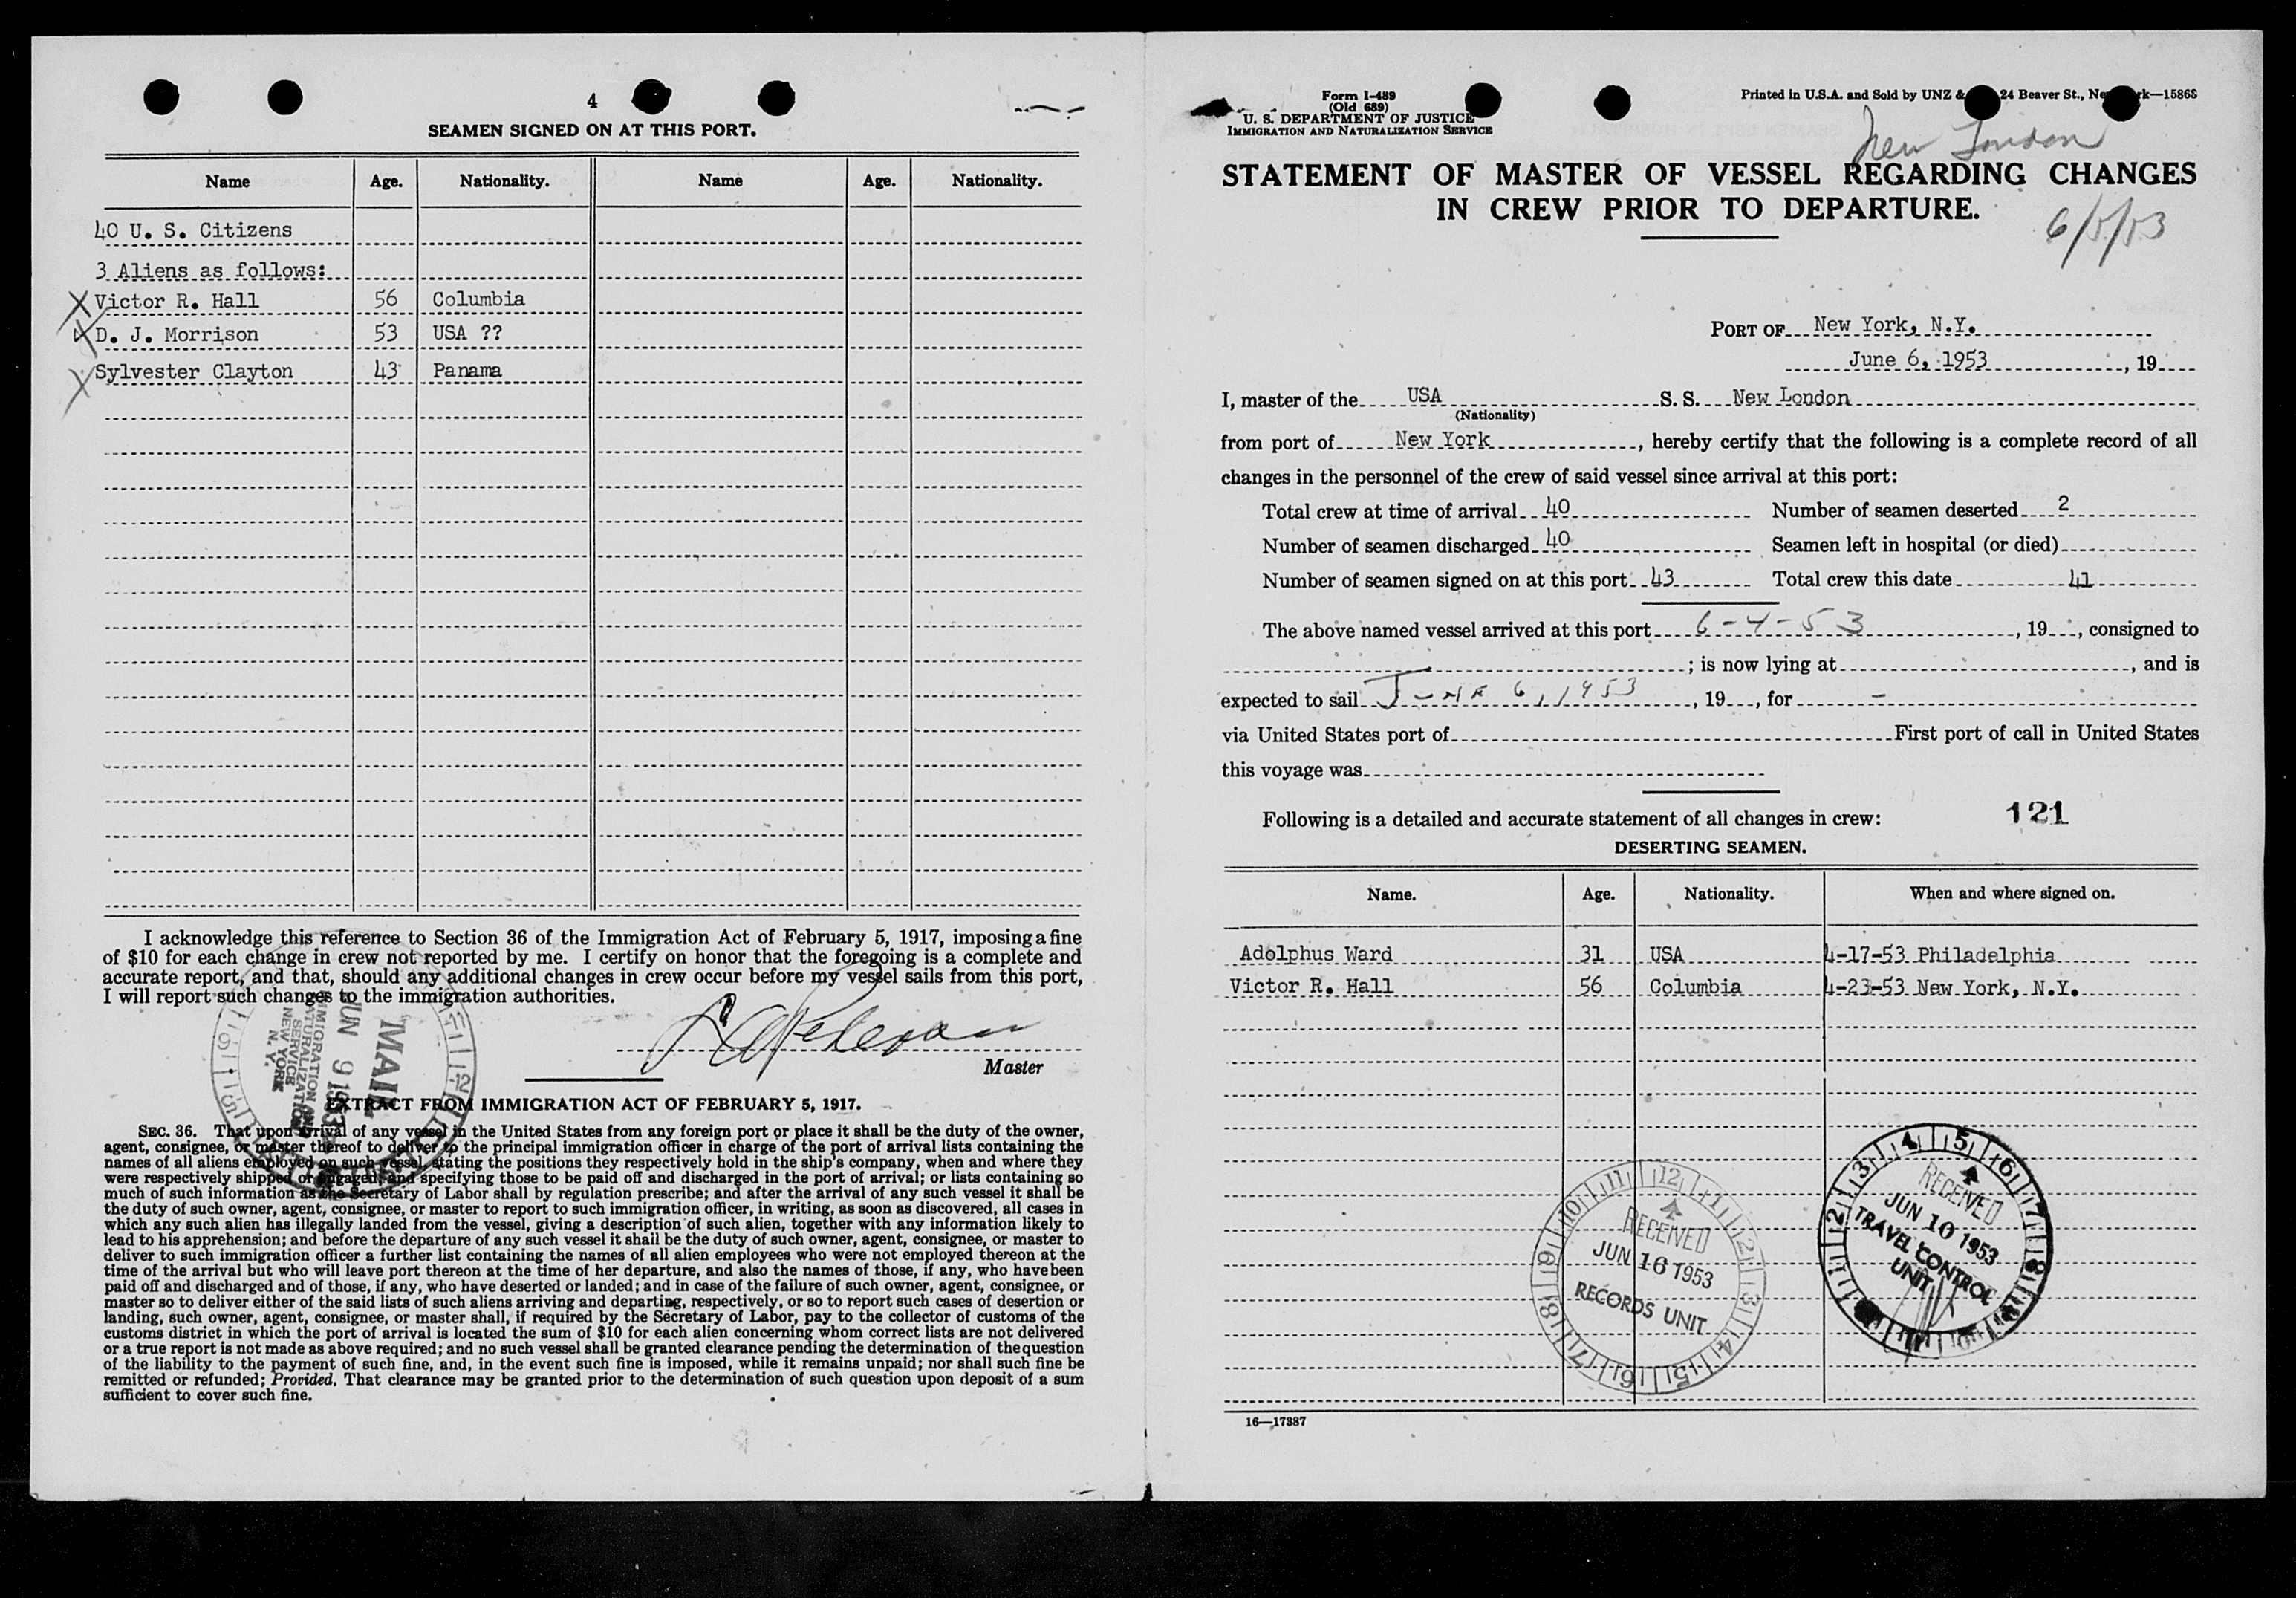 4
SEAMEN SIGNED ON AT THIS PORT.
Name Age. Nationality. Name Age. Nationality.
40 U. S. Citizens
3 Aliens as follows:
X Victor R. Hall 56 Columbia
X D. J. Morrison 53 USA ??
X Sylvester Clayton 43 Panama
I acknowledge this reference to Section 36 of the Immigration Act of February 5, 1917, imposing a fine
of $10 for each change in crew not reported by me. I certify on honor that the foregoing is a complete and
accurate report, and that, should any additional changes in crew occur before my vessel sails from this port,
I will report such changes to the immigration authorities.
Master
MAIL
JUN 9 1953
IMMIGRATION AND
NATURALIZATION
SERVICE
NEW YORK
N. Y.
EXTRACT FROM IMMIGRATION ACT OF FEBRUARY 5, 1917.
SEC. 36. That upon arrival of any vessel in the United States from any foreign port or place it shall be the duty of the owner,
agent, consignee, or master thereof to deliver to the principal immigration officer in charge of the port of arrival lists containing the
names of all aliens employed on such vessel, stating the positions they respectively hold in the ship's company, when and where they
were respectively shipped or engaged, and specifying those to be paid off and discharged in the port of arrival; or lists containing so
much of such information as the Secretary of Labor shall by regulation prescribe; and after the arrival of any such vessel it shall be
the duty of such owner, agent, consignee, or master to report to such immigration officer, in writing, as soon as discovered, all cases in
which any such alien has illegally landed from the vessel, giving a description of such alien, together with any information likely to
lead to his apprehension; and before the departure of any such vessel it shall be the duty of such owner, agent, consignee, or master to
deliver to such immigration officer a further list containing the names of all alien employees who were not employed thereon at the
time of the arrival but who will leave port thereon at the time of her departure, and also the names of those, if any, who have been
paid off and discharged and of those, if any, who have deserted or landed; and in case of the failure of such owner, agent, consignee, or
master so to deliver either of the said lists of such aliens arriving and departing, respectively, or so to report such cases of desertion or
landing, such owner, agent, consignee, or master shall, if required by the Secretary of Labor, pay to the collector of customs of the
customs district in which the port of arrival is located the sum of $10 for each alien concerning whom correct lists are not delivered
or a true report is not made as above required; and no such vessel shall be granted clearance pending the determination of the question
of the liability to the payment of such fine, and, in the event such fine is imposed, while it remains unpaid; nor shall such fine be
remitted or refunded; Provided, That clearance may be granted prior to the determination of such question upon deposit of a sum
sufficient to cover such fine.
Form I-489
(Old 689)
U. S. DEPARTMENT OF JUSTICE
IMMIGRATION AND NATURALIZATION SERVICE
Printed in U.S.A. and Sold by UNZ & 24 Beaver St., New York—15868
New London
STATEMENT OF MASTER OF VESSEL REGARDING CHANGES
IN CREW PRIOR TO DEPARTURE.
6/5/53
PORT OF New York, N.Y.
June 6, 1953, 19
I, master of the USA S. S. New London
(Nationality)
from port of New York, hereby certify that the following is a complete record of all
changes in the personnel of the crew of said vessel since arrival at this port:
Total crew at time of arrival 40 Number of seamen deserted 2
Number of seamen discharged 40 Seamen left in hospital (or died)
Number of seamen signed on at this port 43 Total crew this date 41
The above named vessel arrived at this port 6-4-53, 19, consigned to
; is now lying at , and is
expected to sail June 6, 1953, 19, for -
via United States port of First port of call in United States
this voyage was
Following is a detailed and accurate statement of all changes in crew: 121
DESERTING SEAMEN.
Name. Age. Nationality. When and where signed on.
Adolphus Ward 31 USA 4-17-53 Philadelphia
Victor R. Hall 56 Columbia 4-23-53 New York, N.Y.
RECEIVED
JUN 16 1953
RECORDS UNIT
RECEIVED
JUN 10 1953
TRAVEL CONTROL
UNIT
16—17387